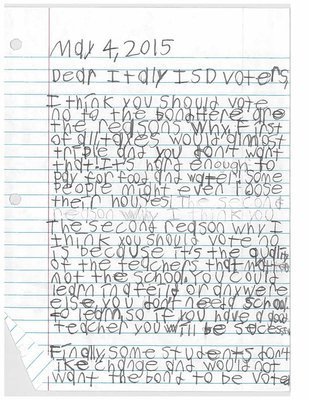 May 4, 2015
Dear Italy ISD voters,
I think you should vote
no to the bond Here are
the reasons why. First
of all taxes would almost
triple and you don't want
that. It's hard enough to
pay for food and water some
people might even loose
their houses. The second
reason why I think you
The second reason why I
think you should vote no
is because it's the quality
of the teachers that matter
not the school you could
learn in a feild or anywere
else you don't need school
to learn, so if you have a good
teacher you will be
Finally some students don't
like change and would not
want the bond to be voted